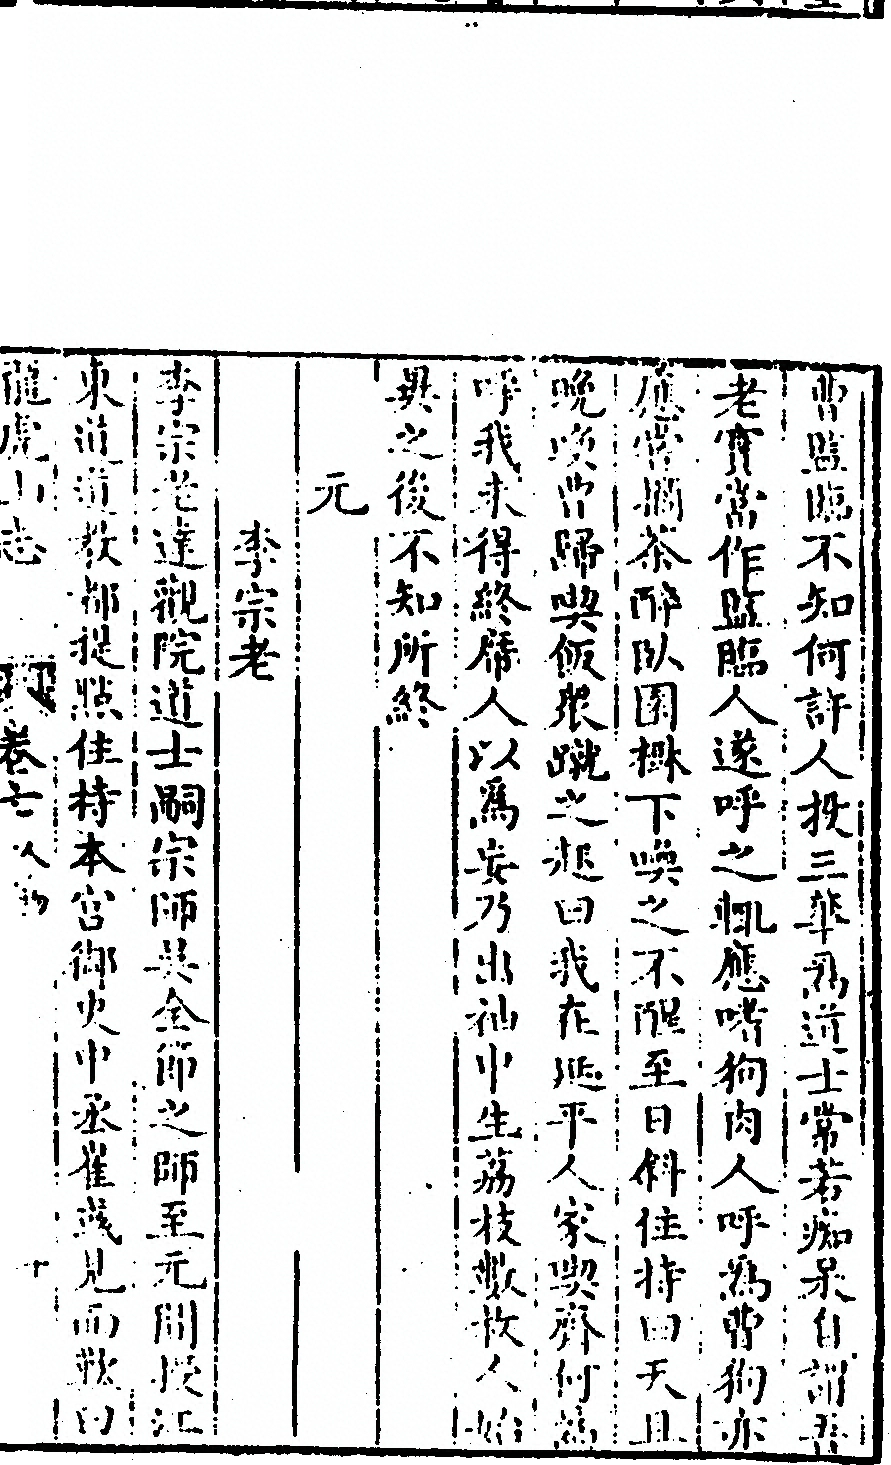 曹監臨不知何許人投三華爲道士常若痴呆自謂吾
老實當作監臨人遂呼之輒應嗜狗肉人呼爲曹狗亦
應嘗摘茶醉臥園樹下喚之不醒至日斜住持曰天且
晚喚曹歸喫飯衆蹴之起曰我在延平人家喫齋何爲
呼我未得終席人以爲妄乃出袖中生荔枝數枚人始
異之後不知所終
元
李宗老
李宗老達觀院道士嗣宗師吳全節之師至元間授江
東道道教都提點住持本宮御史中丞崔彧見而歎曰
龍虎山志 卷七 人物 十